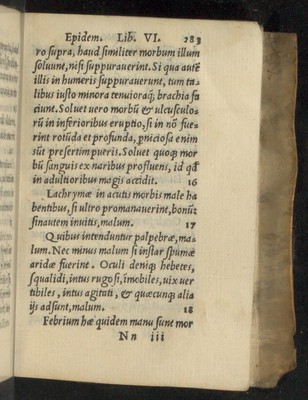 Epidem. Lib. VI. 283
ro supra, haud similiter morbum illum
soluunt, nisi suppurauerint. Si qua autē
illis in humeris suppurauerunt, tum ta⸗
libus iusto minora tenuioraq́; brachia fa
ciunt. Soluet uero morbū & ulcusculo⸗
rū in inferioribus eruptio, si in nō fue⸗
rint rotūda et profunda, ꝑniciosa enim
sūt presertim pueris. Soluet quoq; mor
bū sanguis ex naribus profluens, id qđ
in adultioribus magis accidit. 16
Lachrymæ in acutis morbis male ha
bentibus, si ultro promanauerint, bonū:
sin autem inuitis, malum. 17
Quibus intenduntur palpebræ, ma⸗
lum. Nec minus malum si instar spumæ
aridæ fuerint. Oculi deniq; hebetes,
squalidi, intus rugosi, īmobiles, uix uer
tibiles, intus agitati, & quæcunq; alia
ijs adsunt, malum. 18
Febrium hæ quidem manu sunt mor
Nn iii